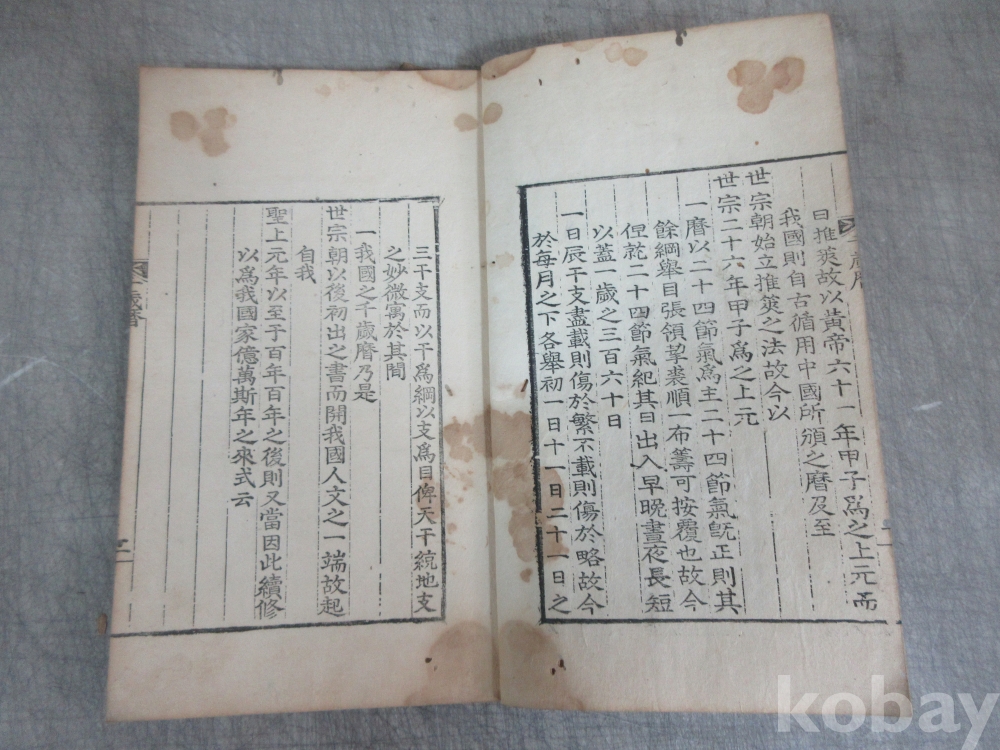 曰推筴故以黃帝六十一年甲子爲之上元而
我國則自古循用中國所頒之曆及至
世宗朝始立推筴之法故今以
世宗二十六年甲子爲之上元
一曆以二十四節氣爲主二十四節氣旣正則其
餘綱舉目張領挈裘順一布籌可按覆也故今
但就二十四節氣紀其日出入早晩晝夜長短
以蓋一歲之三百六十日
一日辰干支盡載則傷於繁不載則傷於略故今
於每月之下各舉初一日十一日二十一日之
三干支而以干爲綱以支爲目俾天干統地支
之妙微寓於其間
一我國之千歲曆乃是
世宗朝以後初出之書而開我國人文之一端故起
自我
聖上元年以至于百年百年之後則又當因此續修
以爲我國家億萬斯年之來式云
二
kobay